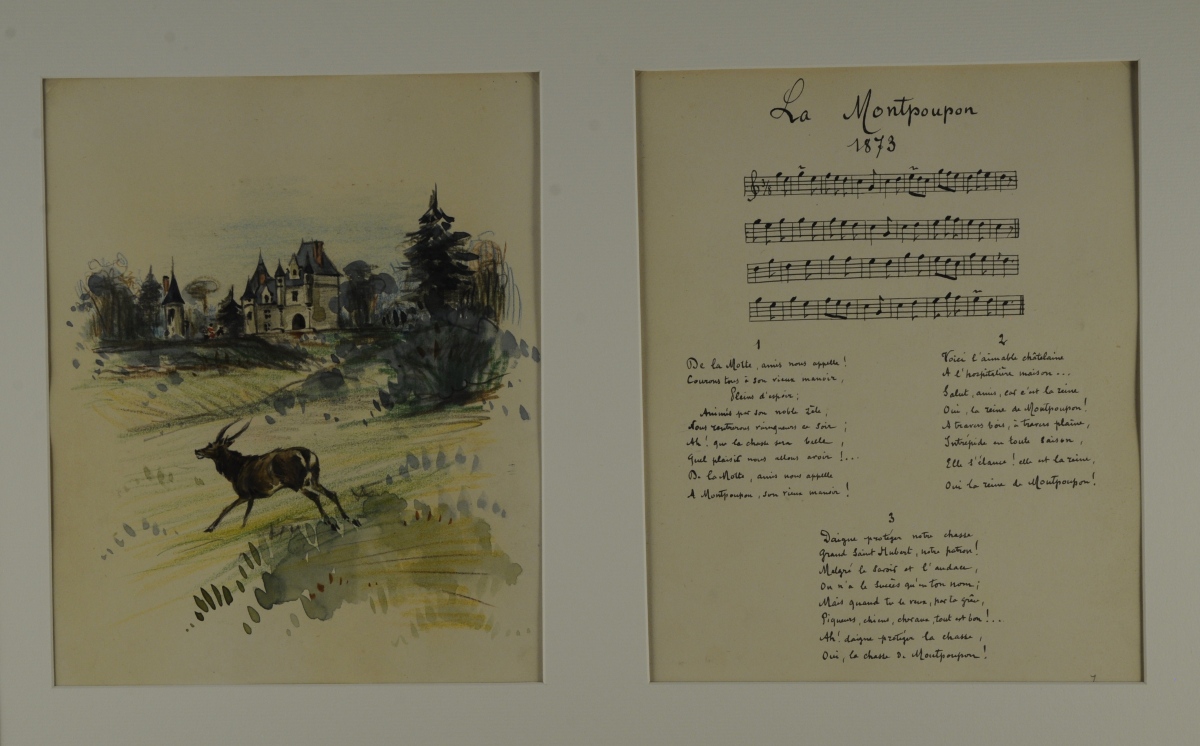 La Montpoupon
1873
1
De la Motte, amis nous appelle !
Courons tous à son vieux manoir,
Pleins d'espoir ;
Animés par son noble zèle,
Nous rentrerons vainqueurs ce soir ;
Ah ! que la chasse sera belle,
Quel plaisir nous allons avoir !...
De la Motte, amis nous appelle
A Montpoupon, son vieux manoir !
2
Voici l'aimable châtelaine
A l'hospitalière maison...
Salut, amis, car c'est la reine
Oui, la reine de Montpoupon !
A travers bois, à travers plaine,
Intrépide en toute saison,
Elle s'élance ! elle est la reine,
Oui la reine de Montpoupon !
3
Daigne protéger notre chasse
Grand Saint Hubert, notre patron !
Malgré le savoir et l'audace,
On n'a le succès qu'en ton nom ;
Mais quand tu le veux, par ta grâce,
Piqueurs, chiens, chevaux, tout est bon !..
Ah ! daigne protéger la chasse,
Oui, la chasse de Montpoupon !